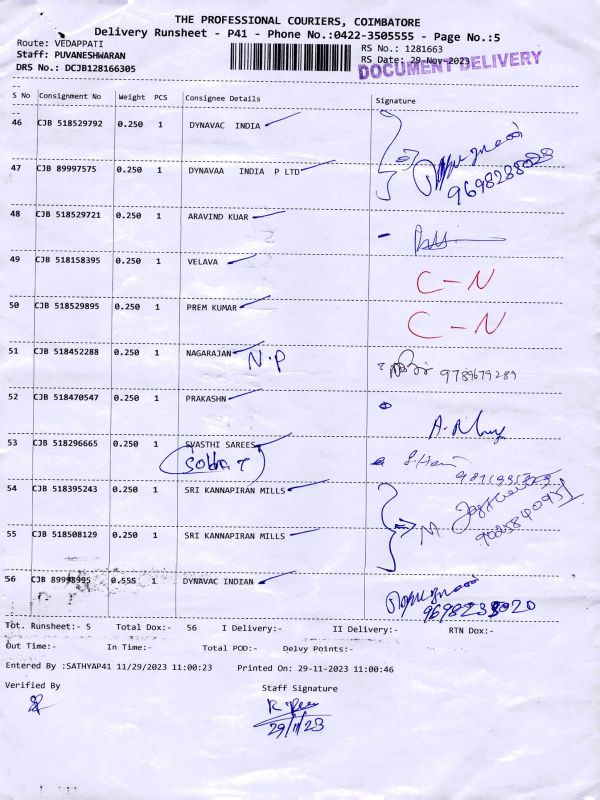 THE PROFESSIONAL COURIERS, COIMBATORE
Delivery Runsheet - P41 - Phone No.:0422-3505555 - Page No.:5
Route: VEDAPPATI
RS No.: 1281663
Staff: PUVANESHWARAN
RS Date: 29-Nov-2023
DRS No.: DCJB128166305
DOCUMENT DELIVERY
S No Consignment No Weight PCS Consignee Details Signature
46 CJB 518529792 0.250 1 DYNAVAC INDIA
47 CJB 89997575 0.250 1 DYNAVAA INDIA P LTD
48 CJB 518529721 0.250 1 ARAVIND KUAR
49 CJB 518158395 0.250 1 VELAVA C-N
50 CJB 518529895 0.250 1 PREM KUMAR C-N
51 CJB 518452288 0.250 1 NAGARAJAN N.P 9789679289
52 CJB 518470547 0.250 1 PRAKASHN
53 CJB 518296665 0.250 1 SVASTHI SAREES
54 CJB 518395243 0.250 1 SRI KANNAPIRAN MILLS
55 CJB 518508129 0.250 1 SRI KANNAPIRAN MILLS
56 CJB 89998995 0.555 1 DYNAVAC INDIAN
Tot. Runsheet:- 5 Total Dox:- 56 I Delivery:- II Delivery:- RTN Dox:-
Out Time:- In Time:- Total POD:- Delvy Points:-
Entered By :SATHYAP41 11/29/2023 11:00:23 Printed On: 29-11-2023 11:00:46
Verified By Staff Signature
29/11/23